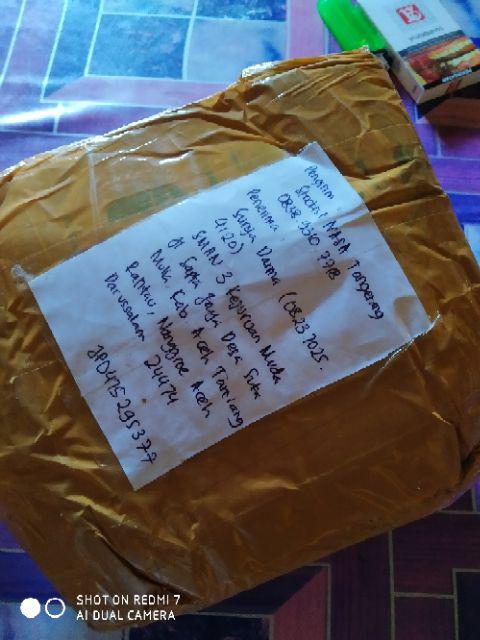 Pengirim
Shodiq NABA Tangerang
0838 9310 7798
Penerima
Surya Darma (0823 7025.
4120)
SMAN 3 Kejuruan Muda
Jl Sapta Jaya Desa Suka
Mulia Kab. Aceh Tamiang
Rantau, Nanggroe Aceh
Darussalam 24474
JP0475295377
SHOT ON REDMI 7
AI DUAL CAMERA